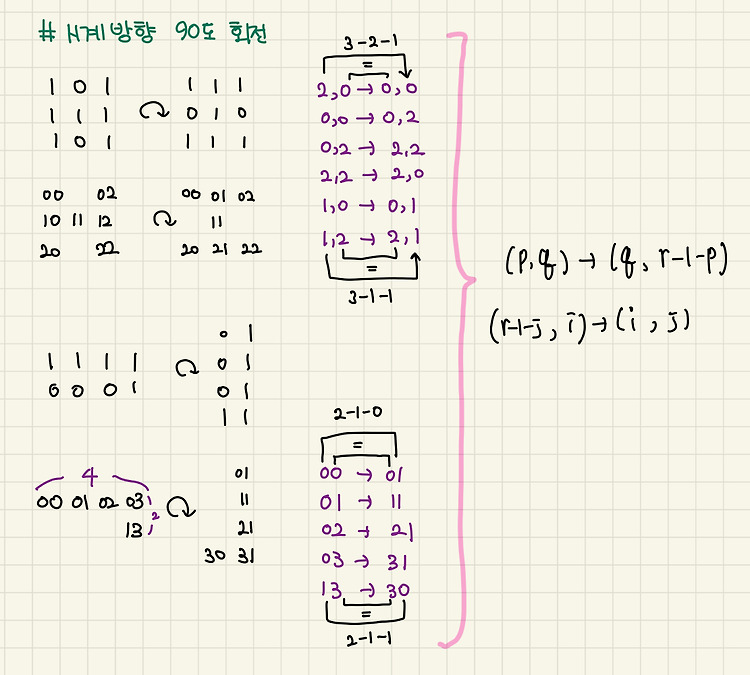 # 시계방향 90도 회전
1 0 1
1 1 1
1 0 1
1 1 1
0 1 0
1 1 1
00 02
10 11 12
20 22
00 01 02
11
20 21 22
3-2-1
=
2,0 → 0,0
0,0 → 0,2
0,2 → 2,2
2,2 → 2,0
1,0 → 0,1
1,2 → 2,1
=
3-1-1
1 1 1 1
0 0 0 1
0 1
0 1
0 1
1 1
4
00 01 02 03
13
2
01
11
21
30 31
2-1-0
=
00 → 01
01 → 11
02 → 21
03 → 31
13 → 30
=
2-1-1
(p,q) → (q, r-1-p)
(r-1-j, i) → (i, j)